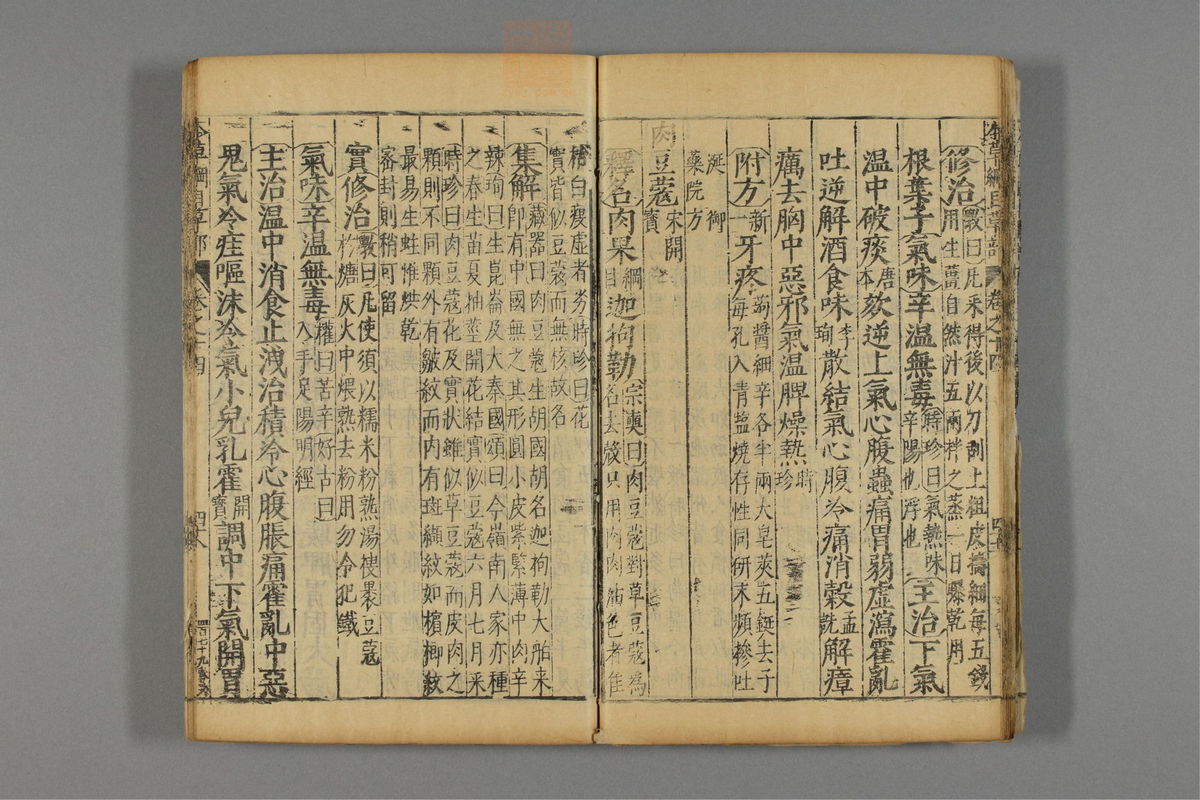 本草綱目草部 卷之十四
修治 斆曰凡采得後以刀刮上粗皮擣細每五錢
用生薑自然汁五兩拌之蒸一日曝乾用
根葉子氣味辛温無毒 時珍曰氣熱味
辛陽也浮也 主治下氣
温中破痰 唐
本 欬逆上氣心腹蟲痛胃弱虚瀉霍亂
吐逆解酒食味 李
珣 散結氣心腹冷痛消穀 孟
詵 解瘴
癘去胸中惡邪氣温脾燥熱 時
珍
附方 新
一 牙疼 蒟醬細辛各半兩大皂莢五鋌去子
每孔入青鹽燒存性同研末頻摻吐
涎 御
藥院方
肉豆蔻 宋開
寶
釋名肉果 綱
目 迦拘勒 宗奭曰肉豆蔻對草豆蔻爲
名去殼只用肉肉油色者佳
枯白瘦虚者劣時珍曰花
實皆似豆蔻而無核故名
集解 藏器曰肉豆蔻生胡國胡名迦拘勒大舶來
即有中國無之其形圓小皮紫緊薄中肉辛
辣珣曰生崑崙及大秦國頌曰今嶺南人家亦種
之春生苗夏抽莖開花結實似豆蔻六月七月采
時珍曰肉豆蔻花及實狀雖似草豆蔻而皮肉之
顆則不同顆外有皺紋而内有斑纈紋如檳榔紋
最易生蛀惟烘乾
密封則稍可留
實修治 斆曰凡使須以糯米粉熟湯搜裹豆蔻
於煻灰火中煨熟去粉用勿令犯鐵
氣味辛温無毒 權曰苦辛好古曰
入手足陽明經
主治温中消食止洩治積冷心腹脹痛霍亂中惡
鬼氣冷疰嘔沫冷氣小兒乳霍 開
寶 調中下氣開胃
本草綱目草部 卷之十四 四六